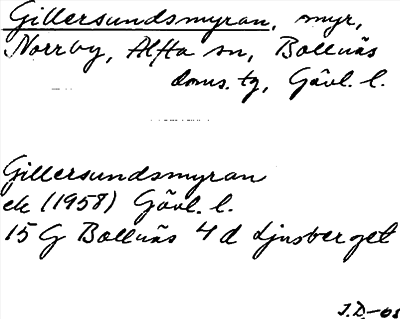 Gillersundsmyran, myr,
Norrby, Alfta sn, Bollnäs
doms. tg, Gävl. l.
Gillersundsmyran
ek (1958) Gävl. l.
15 G Bollnäs 4 d Ljusberget
J.D.-08